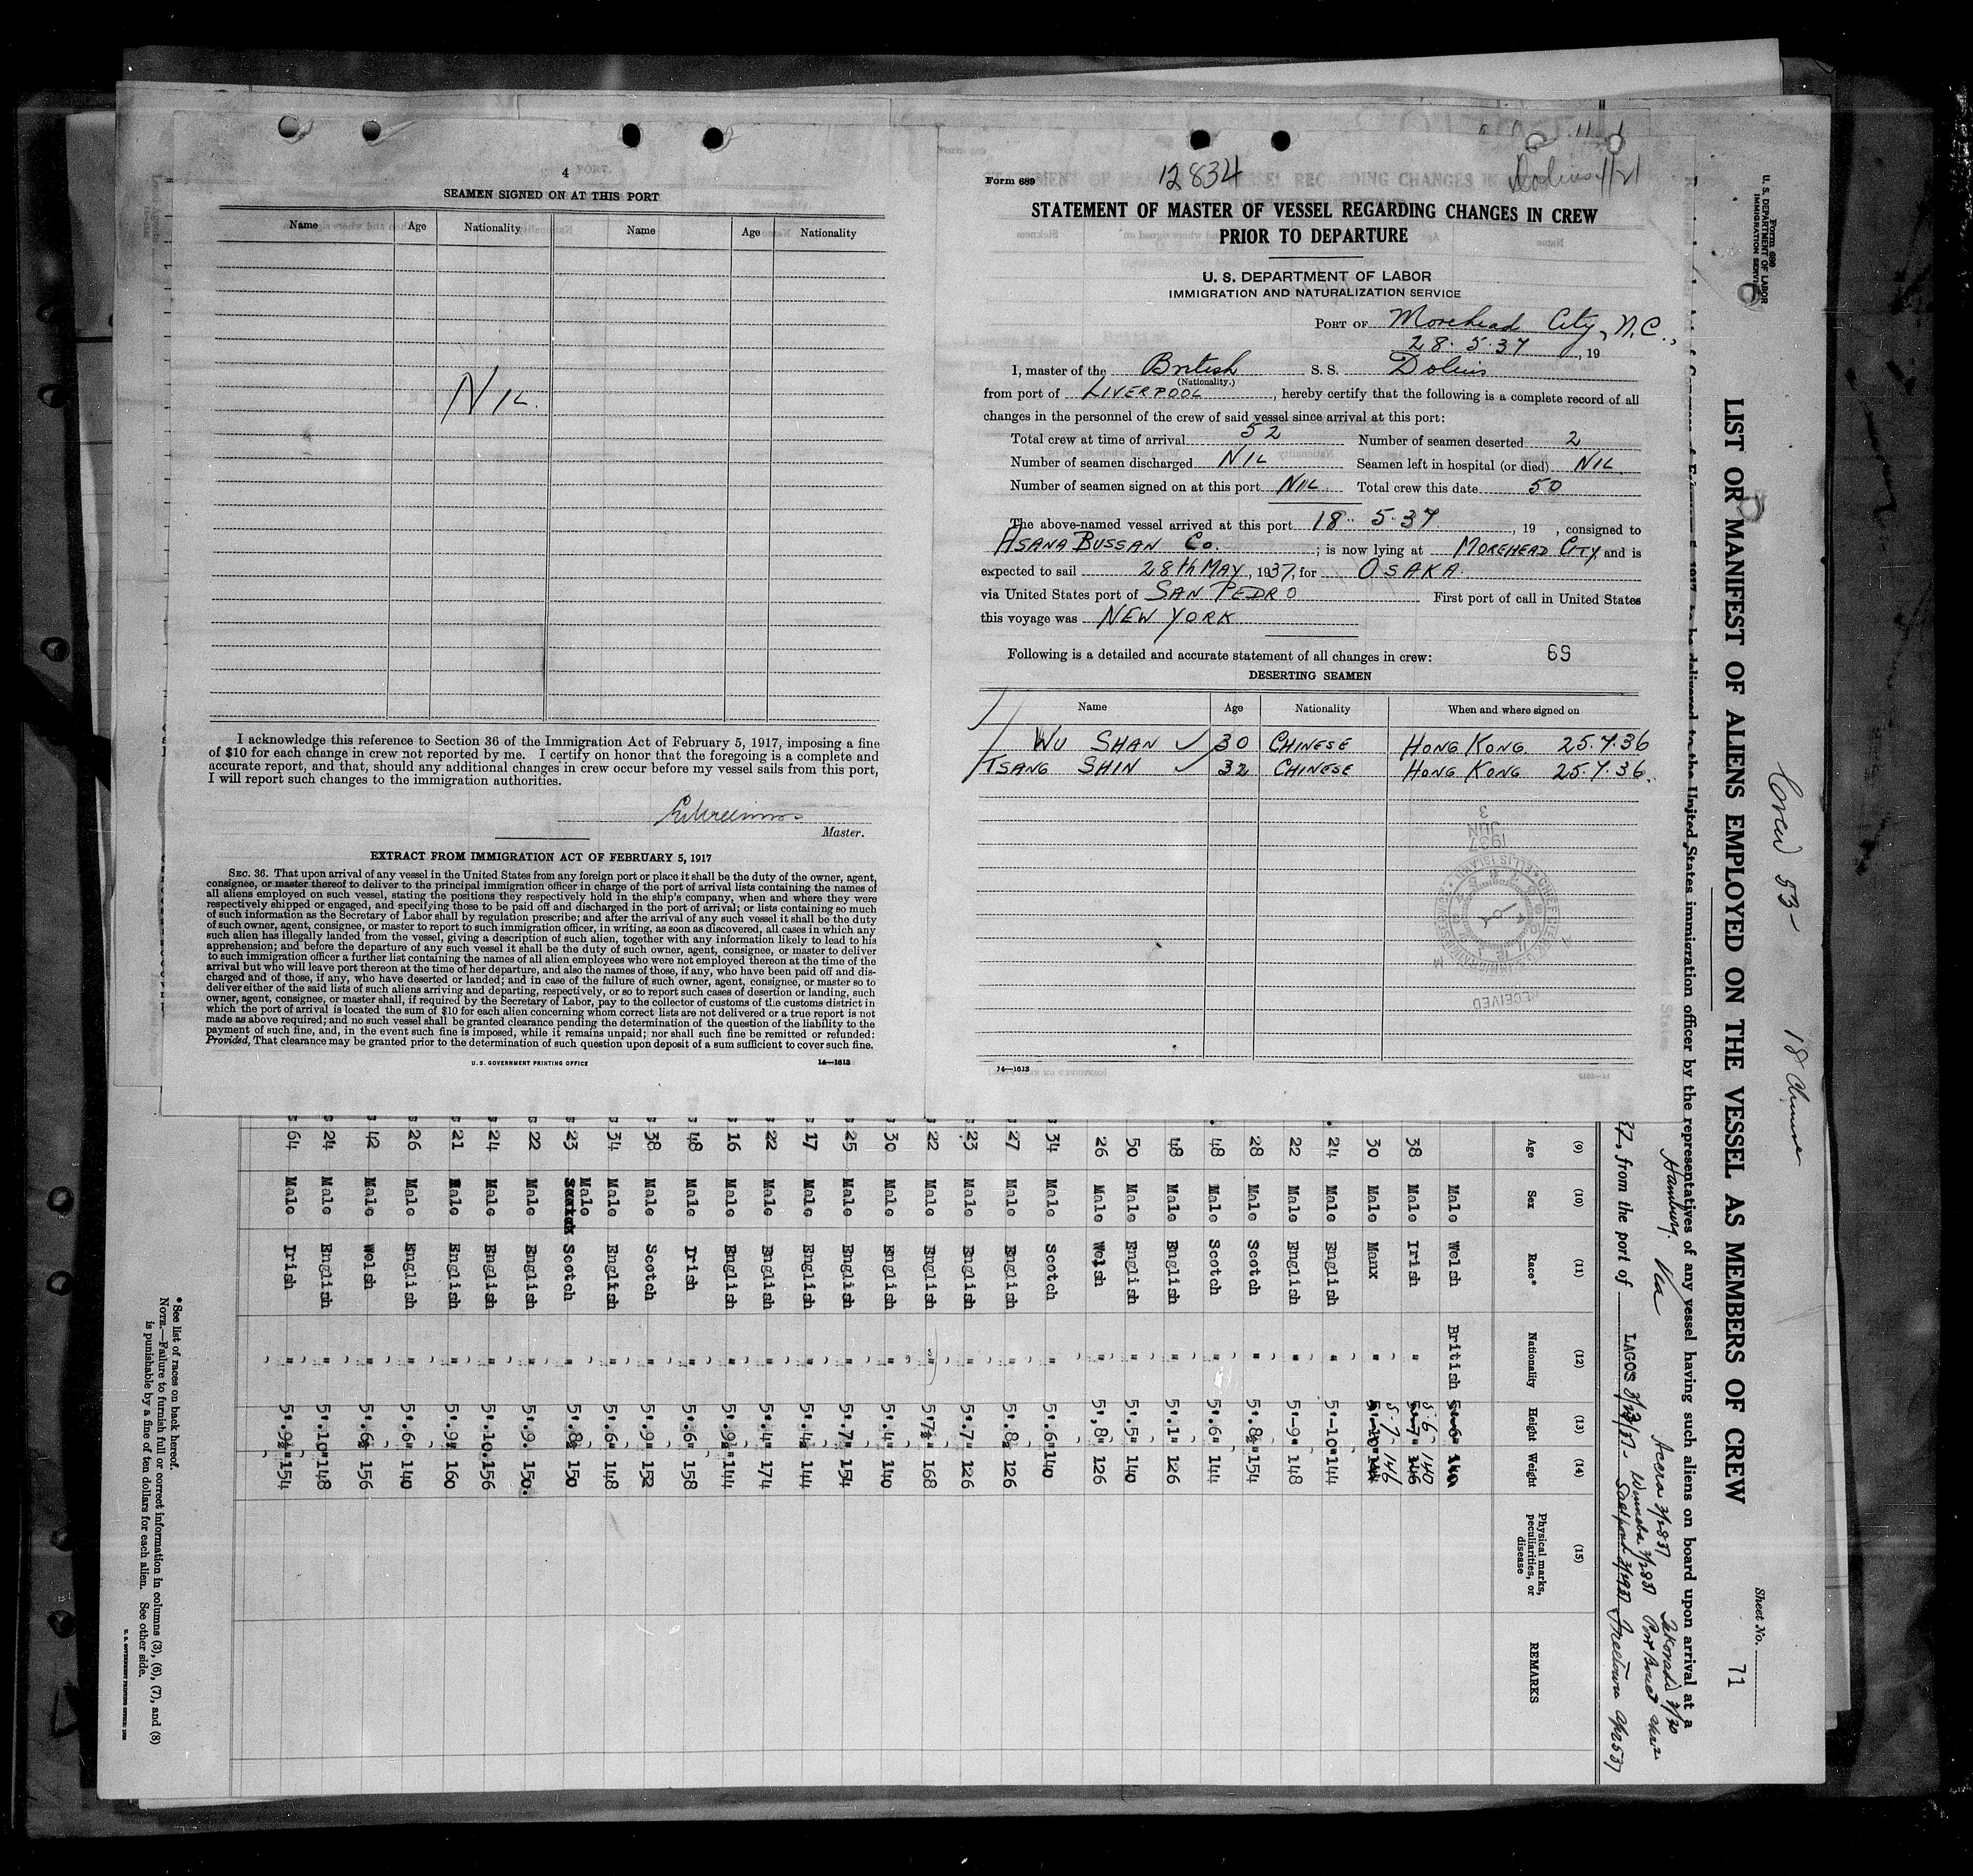 4
SEAMEN SIGNED ON AT THIS PORT
Name Age Nationality Name Age Nationality
NIL.
I acknowledge this reference to Section 36 of the Immigration Act of February 5, 1917, imposing a fine
of $10 for each change in crew not reported by me. I certify on honor that the foregoing is a complete and
accurate report, and that, should any additional changes in crew occur before my vessel sails from this port,
I will report such changes to the immigration authorities.
Master.
EXTRACT FROM IMMIGRATION ACT OF FEBRUARY 5, 1917
SEC. 36. That upon arrival of any vessel in the United States from any foreign port or place it shall be the duty of the owner, agent,
consignee, or master thereof to deliver to the principal immigration officer in charge of the port of arrival lists containing the names of
all aliens employed on such vessel, stating the positions they respectively hold in the ship's company, when and where they were
respectively shipped or engaged, and specifying those to be paid off and discharged in the port of arrival; or lists containing so much
of such information as the Secretary of Labor shall by regulation prescribe; and after the arrival of any such vessel it shall be the duty
of such owner, agent, consignee, or master to report to such immigration officer, in writing, as soon as discovered, all cases in which any
such alien has illegally landed from the vessel, giving a description of such alien, together with any information likely to lead to his
apprehension; and before the departure of any such vessel it shall be the duty of such owner, agent, consignee, or master to deliver
to such immigration officer a further list containing the names of all alien employees who were not employed thereon at the time of the
arrival but who will leave port thereon at the time of her departure, and also the names of those, if any, who have been paid off and dis-
charged and of those, if any, who have deserted or landed; and in case of the failure of such owner, agent, consignee, or master so to
deliver either of the said lists of such aliens arriving and departing, respectively, or so to report such cases of desertion or landing, such
owner, agent, consignee, or master shall, if required by the Secretary of Labor, pay to the collector of customs of the customs district in
which the port of arrival is located the sum of $10 for each alien concerning whom correct lists are not delivered or a true report is not
made as above required; and no such vessel shall be granted clearance pending the determination of the question of the liability to the
payment of such fine, and, in the event such fine is imposed, while it remains unpaid; nor shall such fine be remitted or refunded:
Provided, That clearance may be granted prior to the determination of such question upon deposit of a sum sufficient to cover such fine.
U. S. GOVERNMENT PRINTING OFFICE 14—1613
Form 689 12834
STATEMENT OF MASTER OF VESSEL REGARDING CHANGES IN CREW
PRIOR TO DEPARTURE
U. S. DEPARTMENT OF LABOR
IMMIGRATION AND NATURALIZATION SERVICE
PORT OF Morehead City, N.C.,
28.5.37, 19
I, master of the British S. S. Dolius
(Nationality.)
from port of LIVERPOOL, hereby certify that the following is a complete record of all
changes in the personnel of the crew of said vessel since arrival at this port:
Total crew at time of arrival 52 Number of seamen deserted 2
Number of seamen discharged NIL Seamen left in hospital (or died) NIL.
Number of seamen signed on at this port NIL. Total crew this date 50
The above-named vessel arrived at this port 18.5.37, 19 , consigned to
ASANA BUSSAN Co. ; is now lying at MOREHEAD CITY and is
expected to sail 28th MAY, 1937, for OSAKA.
via United States port of SAN PEDRO First port of call in United States
this voyage was NEW YORK
Following is a detailed and accurate statement of all changes in crew: 69
DESERTING SEAMEN
Name Age Nationality When and where signed on
WU SHAN 30 CHINESE HONG KONG. 25.7.36
TSANG SHIN 32 CHINESE HONG KONG 25.7.36.
RECEIVED
JUN 3
1937
14—1613
Form 680
U. S. DEPARTMENT OF LABOR
IMMIGRATION SERVICE
LIST OR MANIFEST OF ALIENS EMPLOYED ON THE VESSEL AS MEMBERS OF CREW
Sheet No. 71
Crew 53 18 Chinese
to be delivered to the United States immigration officer by the representatives of any vessel having such aliens on board upon arrival at a
Hamburg Via
37, from the port of LAGOS
(9) (10) (11) (12) (13) (14) (15)
Age Sex Race* Nationality Height Weight Physical marks, peculiarities, or disease REMARKS
Male Welsh British
38 Male Irish " 5-6 140
30 Male Manx " 5-7 146
24 Male English " 5'-10" 144
22 Male English " 5'-9" 148
28 Male Scotch " 5'.8½" 154
48 Male Scotch " 5'.6" 144
48 Male English " 5'.1" 126
50 Male English " 5'.5" 140
26 Male Welsh " 5'.8" 126
34 Male Scotch " 5'.6" 140
27 Male English " 5'.8½ 126
23 Male English " 5'.7" 126
22 Male English " 5'7½" 168
30 Male English " 5'.4" 140
25 Male English " 5'.7" 154
17 Male English " 5'.4½ 144
22 Male English " 5'.4" 174
16 Male English " 5'.9½" 144
48 Male Irish " 5'.6" 158
38 Male Scotch " 5'.9" 152
34 Male English " 5'.6" 148
23 Male Scotch " 5'.8½ 150
22 Male English " 5'.9. 150.
24 Male English " 5'.10. 156
21 Male English " 5'.9" 160
26 Male English " 5'.6" 140
42 Male Welsh " 5'.6½ 156
24 Male English " 5'.10" 148
64 Male Irish " 5'.9½" 154
*See list of races on back hereof.
NOTE.—Failure to furnish full or correct information in columns (3), (6), (7), and (8)
is punishable by a fine of ten dollars for each alien. See other side.